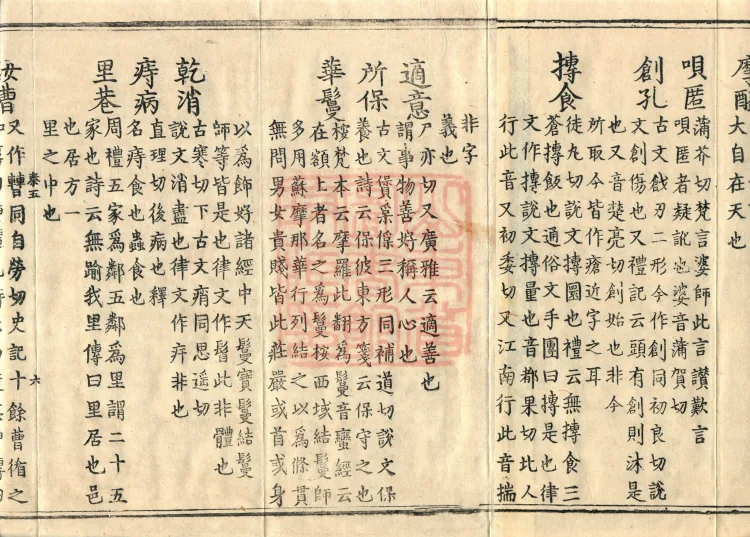 大自在天也
唄匿
蒲芥切梵言婆師此言讃歎言
唄匿者疑訛也婆音蒲賀切
創孔
古文戧刃二形今作創同初良切説
文創傷也又禮記云頭有創則沐是
也又音楚亮切創始也非今
所取今皆作瘡近字之耳
摶食
徒丸切説文摶圜也禮云無摶食三
蒼摶飯也通俗文手團曰摶是也律
文作揣説文揣量也音都果切北人
行此音又初委切又江南行此音揣
非字
義也
適意
尸亦切又廣雅云適善也
謂事物善好稱人心也
所保
古文𠈃𤔍保三形同補道切説文保
養也詩云保彼東方箋云保守之也
華鬘
梵本云摩羅此翻爲鬘音蠻經云
在額上者名之爲鬘桉西域結鬘師
多用蘇摩那華行列結之以爲條貫
無問男女貴賤皆此莊嚴或首或身
以爲飾好諸經中天鬘寶鬘結鬘
師等皆是也律文作髾此非體也
乾消
古寒切下古文痟同思遥切
説文消盡也律文作疒非也
痔病
直理切後病也釋
名痔食也蟲食也
里巷
周禮五家爲鄰五鄰爲里謂二十五
家也詩云無踰我里傳曰里居也邑
也居方一
里之中也
泰五
六
又作𣍘同自勞切史記十餘曹循之